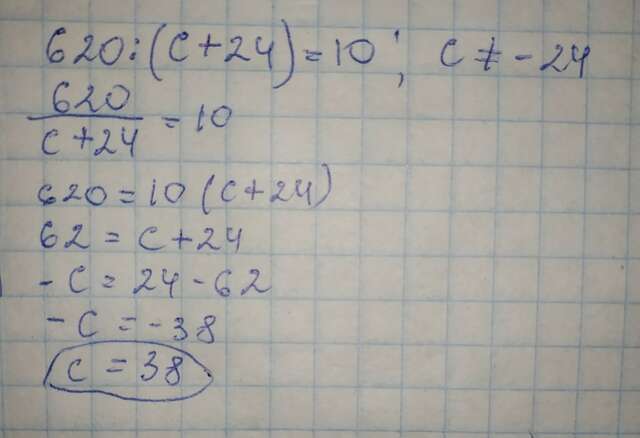 620:(c+24)=10; c≠-24
620
c+24 = 10
620=10(c+24)
62=c+24
-c=24-62
-c=-38
c=38